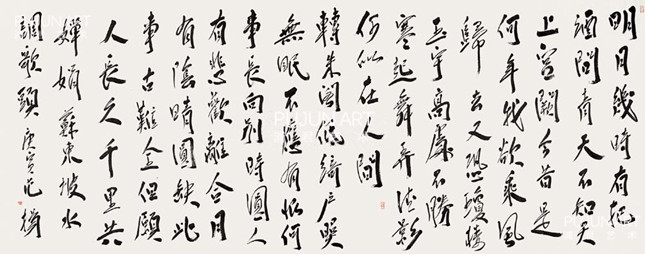 明月幾時有把
酒問青天不知天
上宮闕今昔是
何年我欲乘風
歸去又恐瓊樓
玉宇高處不勝
寒起舞弄清影
何似在人間
轉朱閣低綺戶照
無眠不應有恨何
事長向別時圓人
有悲歡離合月
有陰晴圓缺此
事古難全但願
人長久千里共
嬋娟 蘇東坡水
調歌頭 庚寅
PUJUN ART